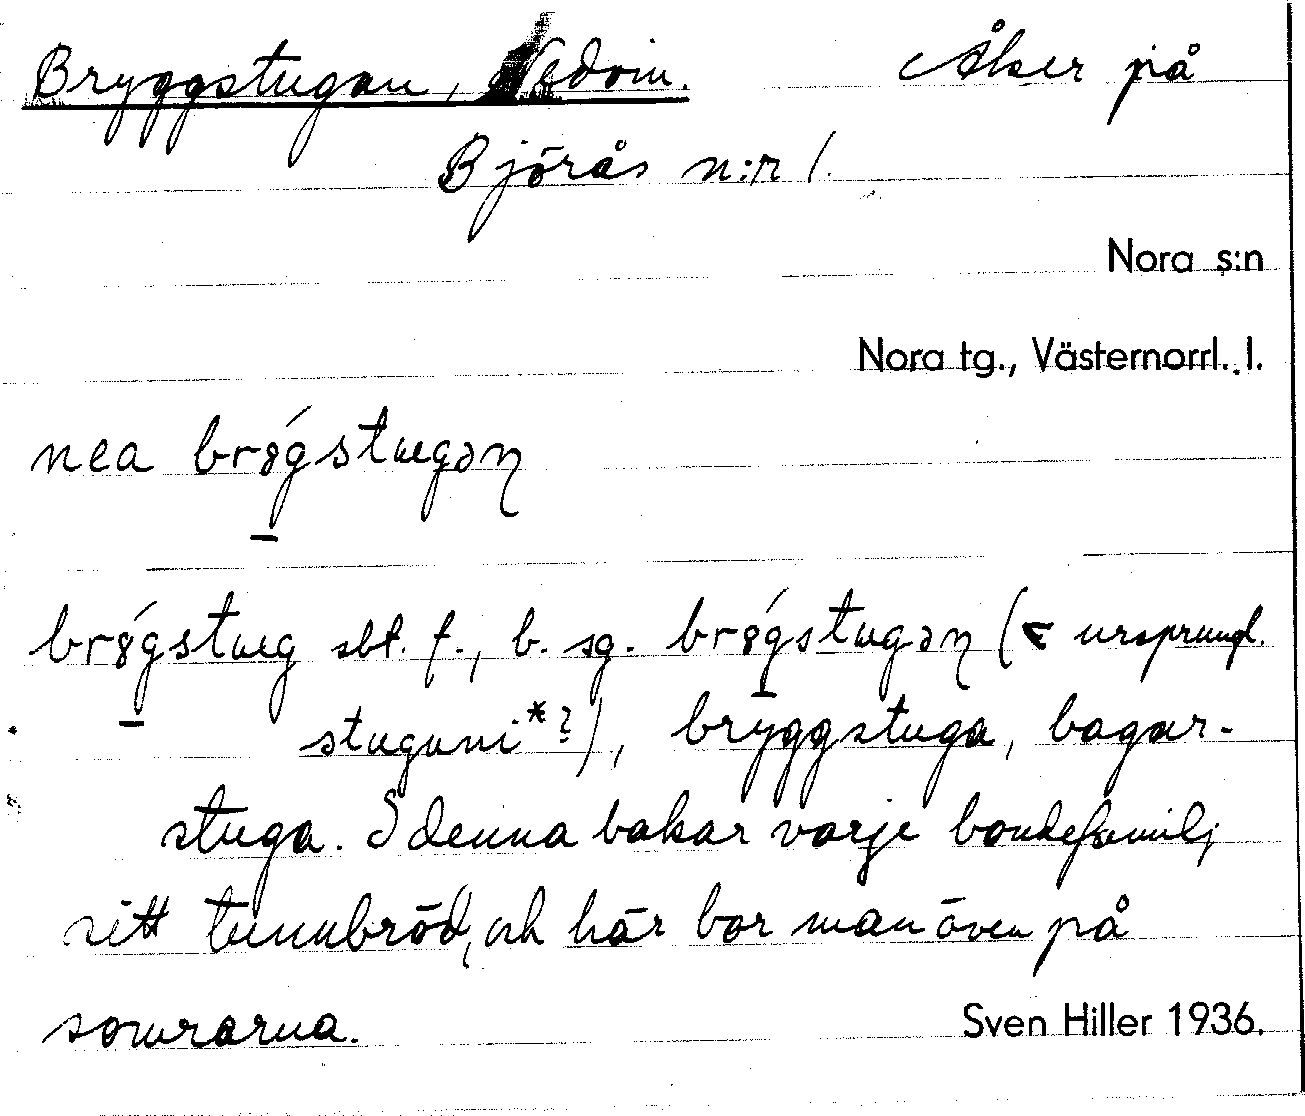 Bryggstugan, Nedom. Åker på
Björås n:r 1.
Nora s:n
Nora tg., Västernorrl. l.
nea brǿgstuɡəɳ
brǿgstug sbt. f., b. sg. brǿgstuɡəɳ (< ursprungl.
stuguni*?), bryggstuga, bagar-
stuga. I denna bakar varje bondefamilj
sitt tunnbröd, och här bor man även på
somrarna.
Sven Hiller 1936.